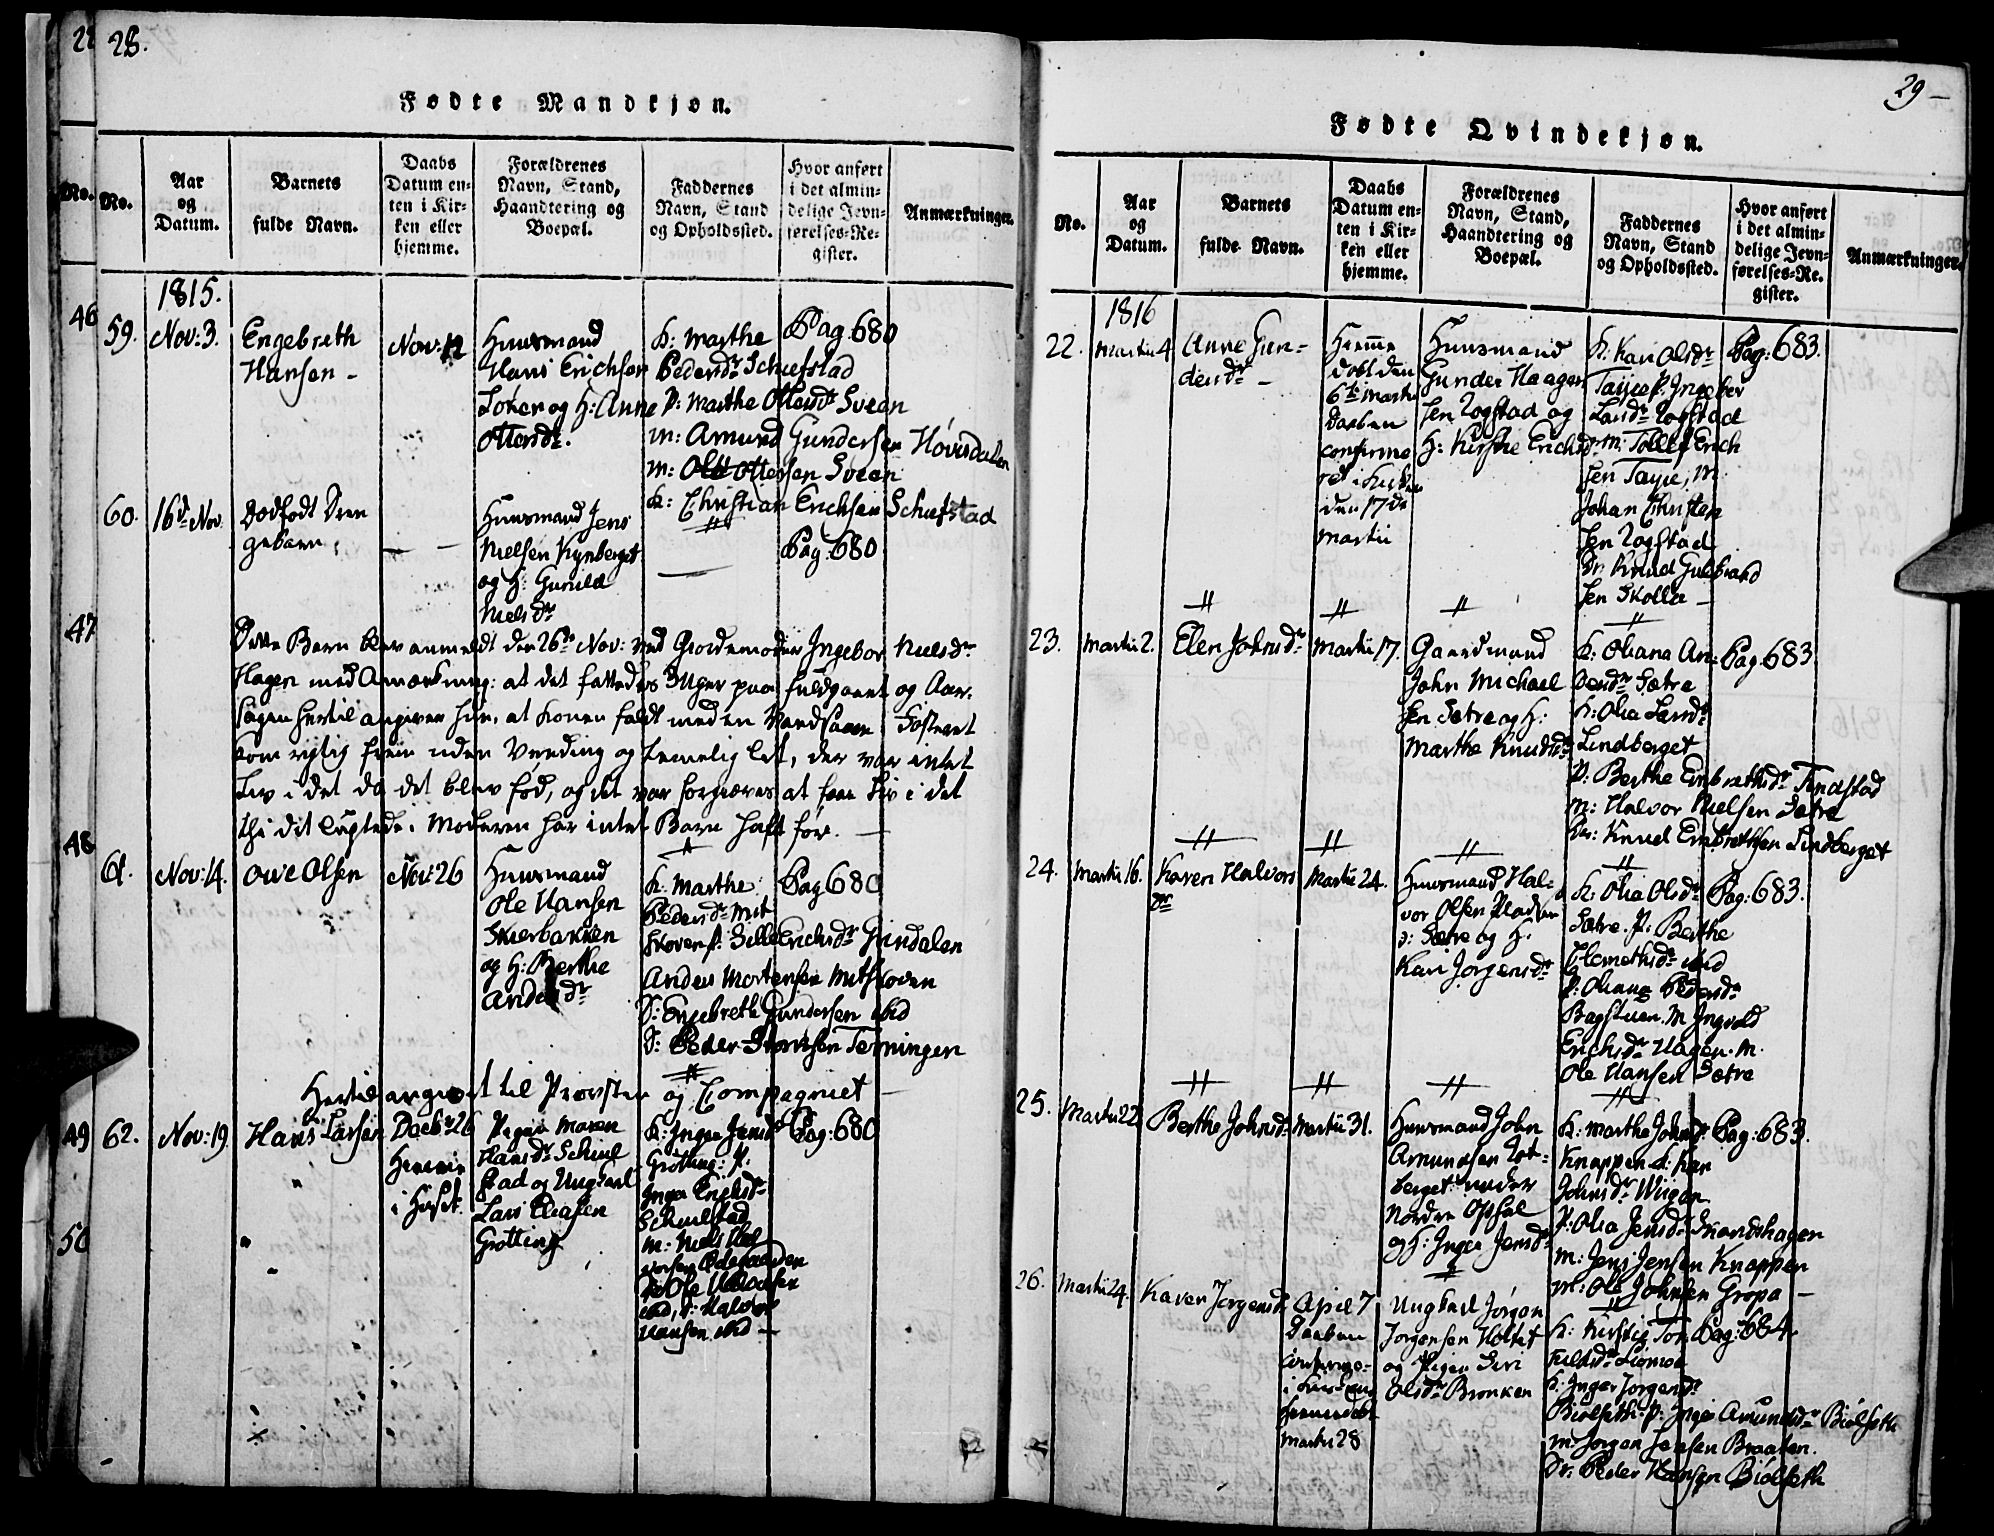 28.
Fødte Mandkjøn.
No.
Aar
og
Datum.
Barnets
fulde Navn.
Daabs
Datum en-
ten i Kir-
ken eller
hjemme.
Forældrenes
Navn, Stand,
Haandtering og
Boepæl.
Faddernes
Navn, Stand
og Opholdssted.
Hvor anført
i det almin-
delige Jevn-
førelses-Re-
gister.
Anmærkninger.
1815.
59.
Nov: 3.
Engebreth
Hansen -
Nov: 12
Huusmand
Hans Erichsen
Løken og H: Anne
Ottersdr.
K: Marthe
Pedersdr Schiefstad
P: Marthe Ottersdr Svean
M: Amund Gundersen Hovisdalen
M: Ottersen Svean
K: Christian Erichsen Schiefstad
Pag 680
60.
16d Nov.
Dødfødt Dren
gebarn,
Huusmand Jens
Nielsen Kynberget
og H: Gunild
Nielsdr
Pag: 680
Dette Barn blev anmeldt den 26de Nov: ved Giordemoder Ingebor Nielsdr
Hagen med Anmærkning: at det fattedes 3 Uger paa fuldgaaet og Aar-
sagen hertil angiver hun, at Konen faldt med en Vandsaae. Fosteret
kom rigtig frem uden Vending og temmelig let, der var intet
Liv i det da det blev fød, og det var forgieves at faae Liv i det
thi dit Moderen har intet Barn haft før. -
61.
Nov: 14.
Owe Olsen
Nov: 26
Huusmand
Ole Hansen
Skierbakken
og H: Berthe
Andersdr
K: Marthe
Pedersdr Mit
skoven P: Sille Erichsdr Grindalen
Anders Mortensen Mitskoven
D: Engebreth Gundersen ibid
D: Peder Terningen
Hertil til Provster og Compagniet -
62.
Nov: 19.
Hans Larsen
Decbr 26
Hjemme
i Huset
Pigen Maren
Hansdr Schiul
stad og Ungkarl
Lars Eliasen
Grøtting
K: Inger Jensdr
Grøtting: P.
Inger Erichsdr
Schiulstad
M: Niels Hal
vorsen Ødegaarden
Ole Halvorsen
ibid, D: Halvor
Hansen ibid -
Pag: 680
29 -
Fødte Qvindekjøn.
No.
Aar
og
Datum.
Barnets
fulde Navn.
Daabs
Datum en-
ten i Kir-
ken eller
hjemme.
Forældrenes
Navn, Stand,
Haandtering og
Boepæl.
Faddernes
Navn, Stand
og Opholdssted.
Hvor anført
i det almin-
delige Jevn-
førelses-Re-
gister.
Anmærkninger.
1816
22.
Martii 4
Anne Gun-
dersdr -
Hjemme
døbt den
6te Martii
Daaben
confirme
ret i Kirken
den 17de
Martii
Huusmand
Gunder Haagen
sen Rogstad og
H: Kirstie Erichsdr
K: Kari Olsdr
Tayie P. Ingebor
Larsdr Rogstad
M: Tollef Erich
sen Tayie, M.
Johan Christan
sen Rogstad
Dr: Knud Gulbrand
sen Skolla -
Pag: 683.
23.
Martii 2.
Elen Johnsdr
Martii 17.
Gaardmand
John Michael
sen Sætre og H:
Marthe Knudsdr
K: Oliana An-
dersdr Sætre
K: Olia Larsdr
Lindberget
P: Berthe Embrethsdr Tindstad
M: Halvor Nielsen Sætre
Dr: Knud Embrethsen Lindberget
Pag 683
24.
Martii 16.
Karen Halvors
dr
Martii 24.
Huusmand Hal-
vor Olsen Pladsen
v: Sætre og H.
Kari Jørgensdr
K: Olia Olsdr
Sætre. P: Berthe
Clemethsdr ibid
P: Oliana Pedersdr
Bagstuen. M Ingvold
Erichsdr Hagen. M.
Ole Hansen Sætre
Pag: 683.
25.
Martii 22
Berthe Johnsdr
Martii 31.
Huusmand John
Amundsen Rot-
berget under
Nordre Opsal
og H: Inger Jensdr
K: Marthe Johnsdr
Knappen K: Kari
Johnsdr Wiigen
P: Olia Jensdr Skandshagen
M: Jens Jensen Knappen
M: Ole Johnsen Gropa -
Pag: 683.
26.
Martii 24.
Karen Jørgensdr
April 7
Daaben
confirme-
i Kirken
hjemmedøbt
Martii 28
Ungkarl Jørgen
Jørgensen Holtet
og Pigen Siri
Olsdr Bronken
K: Kirstie Tor
Liømoe
K: Inger Jørgensdr
Biølseth. P: Inger Amundsdr Biølseth
M: Jørgen Jensen Braaten.
Dr: Peder Hansen Biølseth
Pag: 684